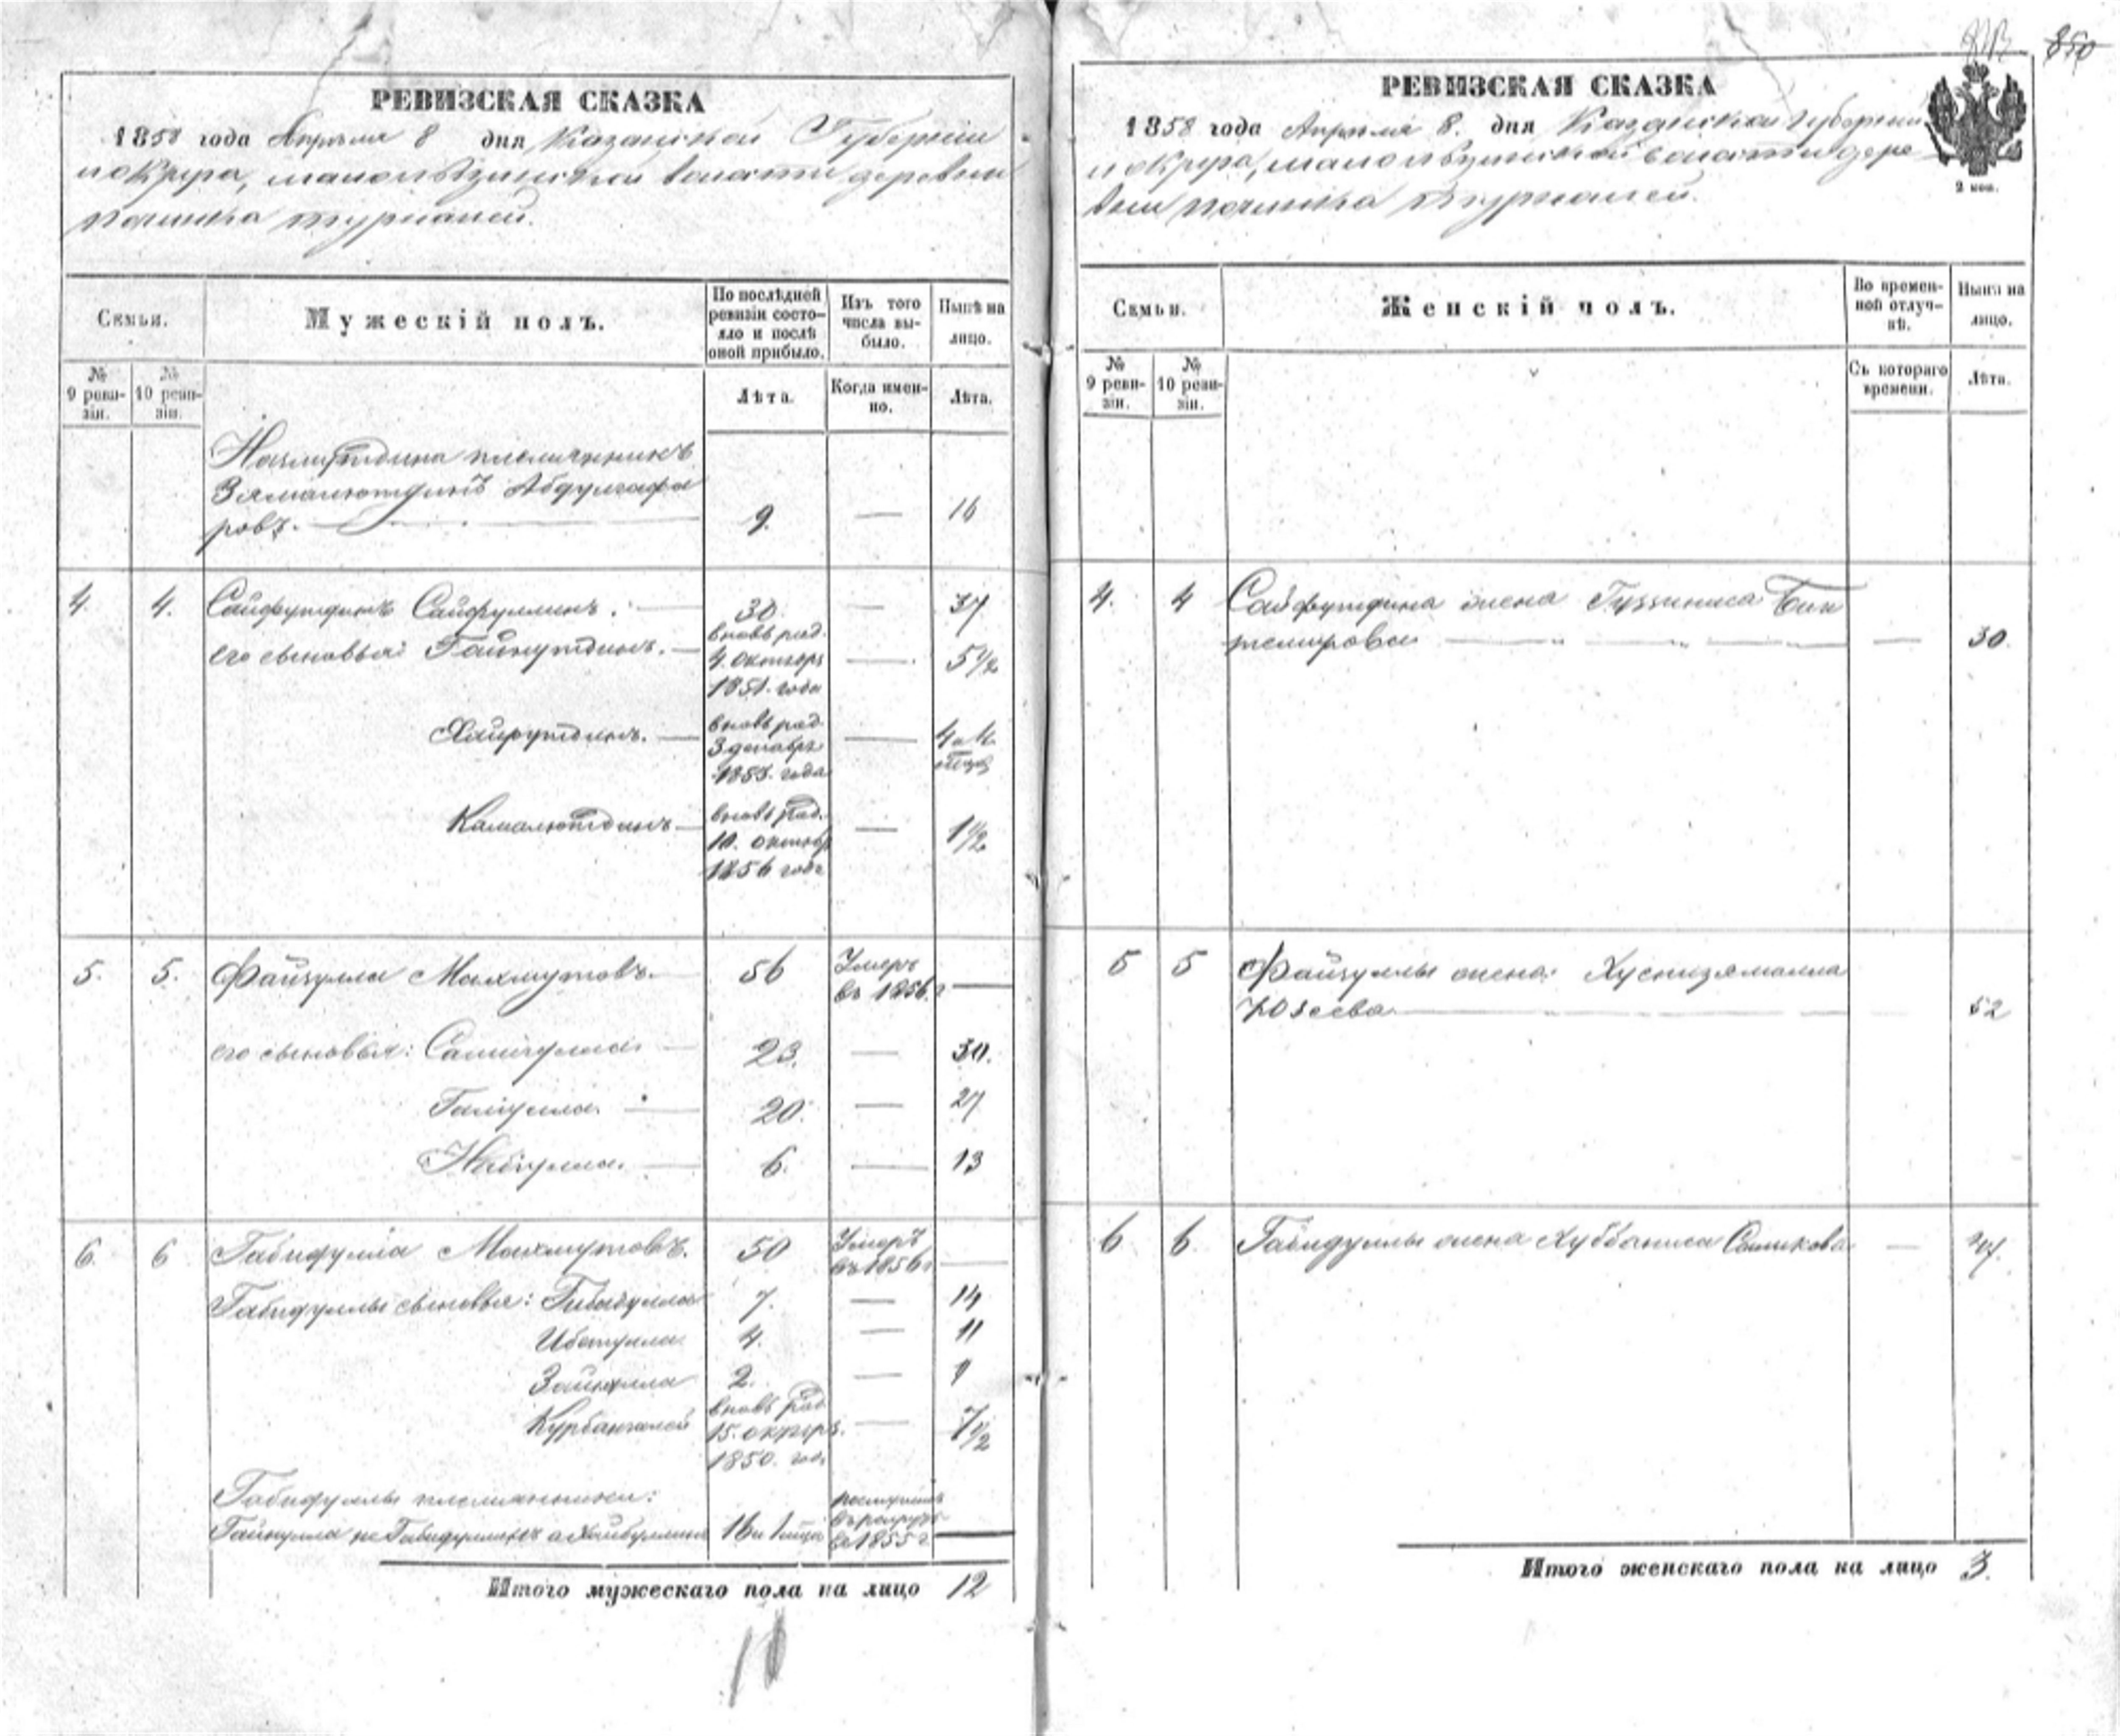 РЕВИЗСКАЯ СКАЗКА
1858 года Апреля 8 дня Казанской Губернии
и округа, волости деревни
починка
Семьи.
Мужескій полъ.
По послѣдней ревизіи состояло и послѣ оной прибыло.
Изъ того числа выбыло.
Нынѣ на лицо.
№ 9 ревизіи.
№ 10 ревизіи.
Лѣта.
Когда именно.
Лѣта.
племянникъ
Абдулгафа
ровъ. 9. — 16
4. 4. Сайфутдинъ Сайфуллинъ. 30 — 37
его сыновья: Гайнутдинъ. вновь рад. 4. октябр 1851. года — 5 1/2
Хайрутдинъ. вновь рад. 3 декабр 185 . года — 4 и 4
Камалютдинъ вновь рад. 10. октябр 1856 года — 1 1/2
5. 5. Файзулла Махмутовъ. 56 Умеръ въ 1856. г —
его сыновья: 23. — 30.
Галіулла. 20. — 27
Набіулла. 6. — 13
6. 6 Габидулла Махмутовъ. 50 Умеръ въ 1856 г —
Габидуллы сыновья: Гибадулла 7. — 14
Ибатулла 4. — 11
Зайнулла 2. — 9
Курбангалей вновь рад 15. октяр. 1850. год — 7 1/2
Габидуллы племянники:
Гайнулла не Габидуллинъ а Хайбуллинъ 16 и 1 въ рекруты в 1855 г —
Итого мужескаго пола на лицо 12
10
850
РЕВИЗСКАЯ СКАЗКА
1858 года Апреля 8. дня Казанской губернии
и округа, волости дере
вни починка
2 коп.
Семьи.
Женскій полъ.
Во временной отлучкѣ.
Нынѣ на лицо.
№ 9 ревизіи.
№ 10 ревизіи.
Съ котораго времени.
Лѣта.
4. 4 Сайфутдина жена Бик
темирова — 30.
5 5 Файзуллы жена: Хуснизямалла
Юзеева 52
6 6 Габидуллы жена Хуббаниса Садикова — 44.
Итого женскаго пола на лицо 3.